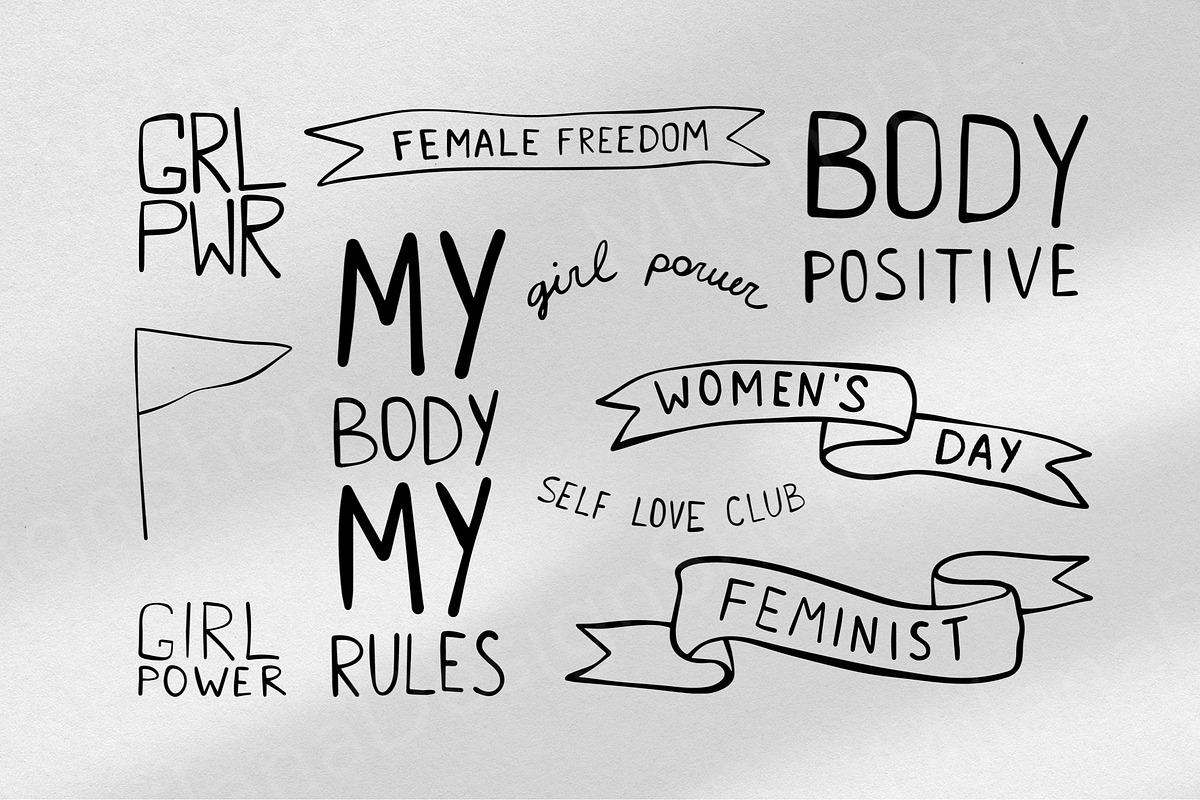 GRL
PWR
FEMALE FREEDOM
BODY
POSITIVE
MY
BODY
MY
RULES
girl power
WOMEN'S
DAY
SELF LOVE CLUB
FEMINIST
GIRL
POWER